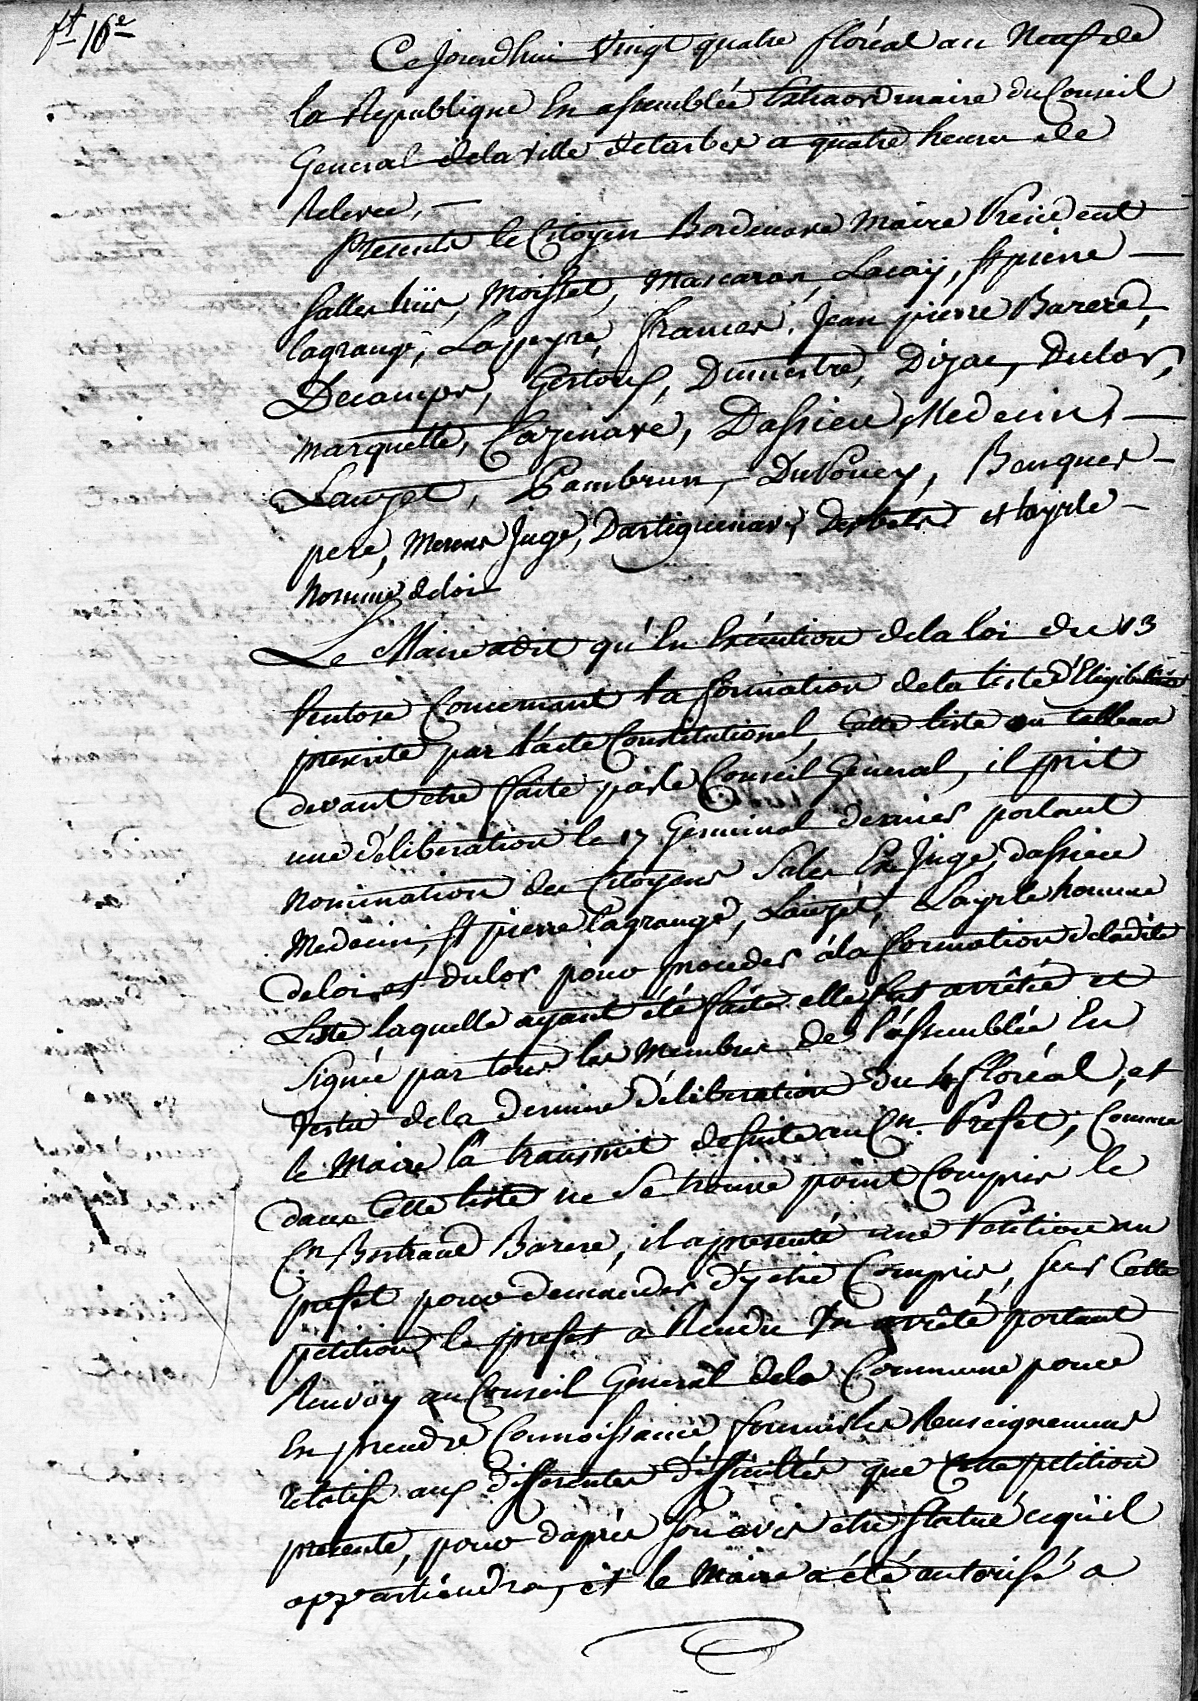 ft 16e
Ce jourdhui vingt quatre floréal an neuf de
la Republique En assemblée Extraordinaire du Conseil
General dela ville detarbes a quatre heures de
Relevée, —
Presents le Citoyen Bordenave Maire President
Salles , Moisset, Mascaron, Lacaÿ, st pierre —
lagrange, Lapeyre, francés, Jean pierre Barere,
Decamps, Gertoux, Dumestre, Dizac, Dulor,
marquette, Cazenave, Dassieu Medecin, —
Lauzet, Cambrun, Dupouey, Bouques —
pere, Juge, Dartiguenave, et Layrle —
homme deloi
Le Maire adit qu'En Exécution dela loi du 13
Ventose Concernant La formation dela liste d'Eligibilité
prescrite par l'acte Constitutionel, Cette liste ou tableau
devant etre faite parle Conseil General, il prit
une déliberation le 17 Germinal dernier portant
nomination des Citoyens Sales Ex Juge, dassieu
Medecin, st pierre lagrange, Lauzet, Layrle homme
deloi, et dulor pour proceder àla formation deladite
Liste laquelle ayant été faite elle fut arrêtée et
signée par tous les Membres de l'assemblée En
vertu dela derniere déliberation du 4 floréal, et
le Maire la transmit desuite au Cn. Prefet, Comme
dans Cette liste ne se trouve point Compris le
Cn. Bertrand Barere, il a presenté une Petition au
prefet pour demander d'y etre Compris, sur Cette
petition le prefet a Rendu Un arrêté portant
Renvoy au Conseil General dela Commune pour
En prendre Connoissance fournir les Renseignemens
relatifs aux differentes difficultés que Cette petition
presente, pour dapres son avis etre statué cequ'il
appartiendra, et le Maire a été autorisé a